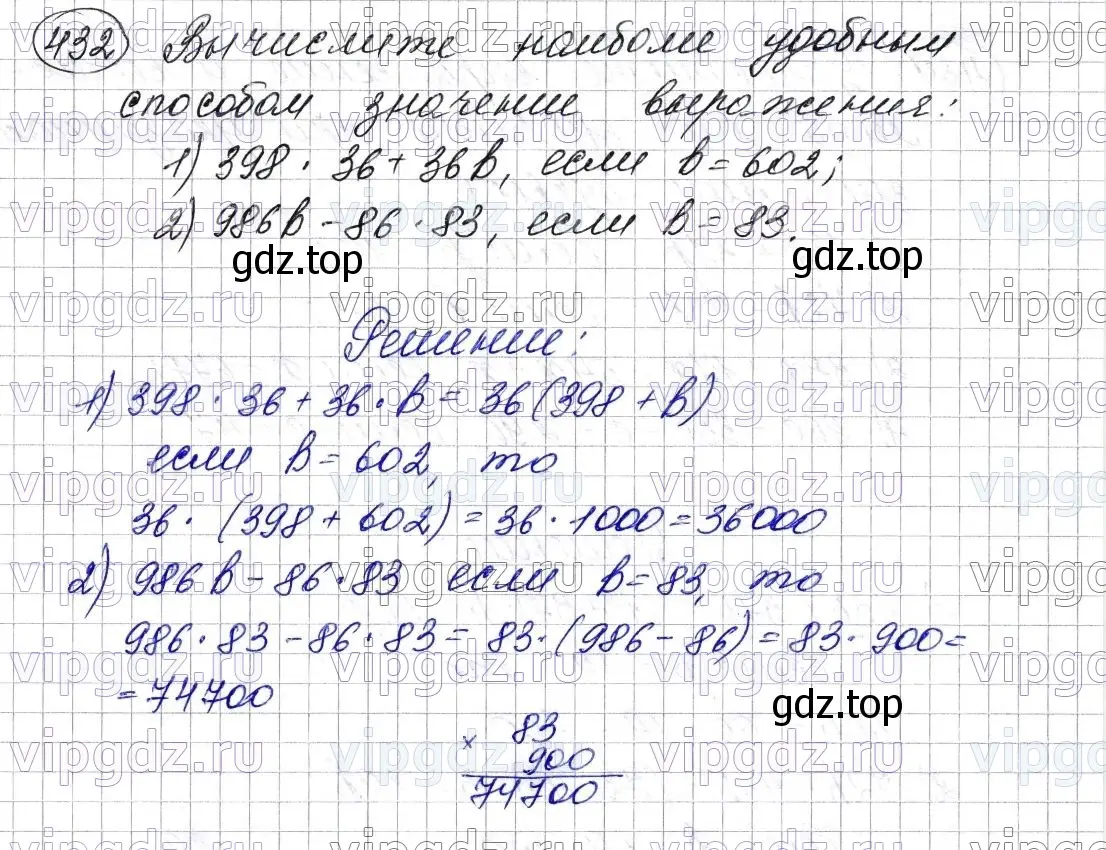 432 Вычислите наиболее удобным
способом значение выражения:
1) 398 · 36 + 36b, если b = 602;
2) 986b - 86 · 83, если b = 83.
gdz.top gdz.top
Решение:
1) 398 · 36 + 36 · b = 36 (398 + b)
если b = 602, то
36 · (398 + 602) = 36 · 1000 = 36000
2) 986b - 86 · 83 если b = 83, то
986 · 83 - 86 · 83 = 83 · (986 - 86) = 83 · 900 =
= 74700
gdz.top
× 83
900
74700
vipgdz.ru